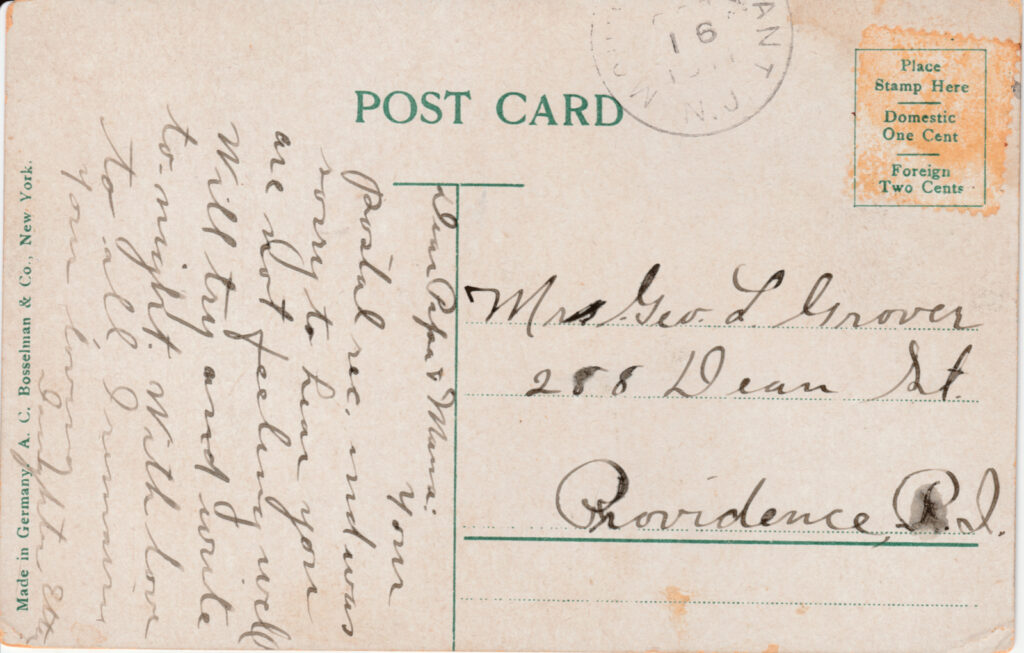 POST CARD
Place
Stamp Here
Domestic
One Cent
Foreign
Two Cents
16
N.J.
Dear Papa & Mama:
Your
postal rec. and was
sorry to hear you
are not feeling well
Will try and write
to-night. With love
to all I remain
your loving
Daughter
Mrs Geo. L. Grover
288 Dean St.
Providence, R.I.
Made in Germany, A. C. Bosselman & Co., New York.